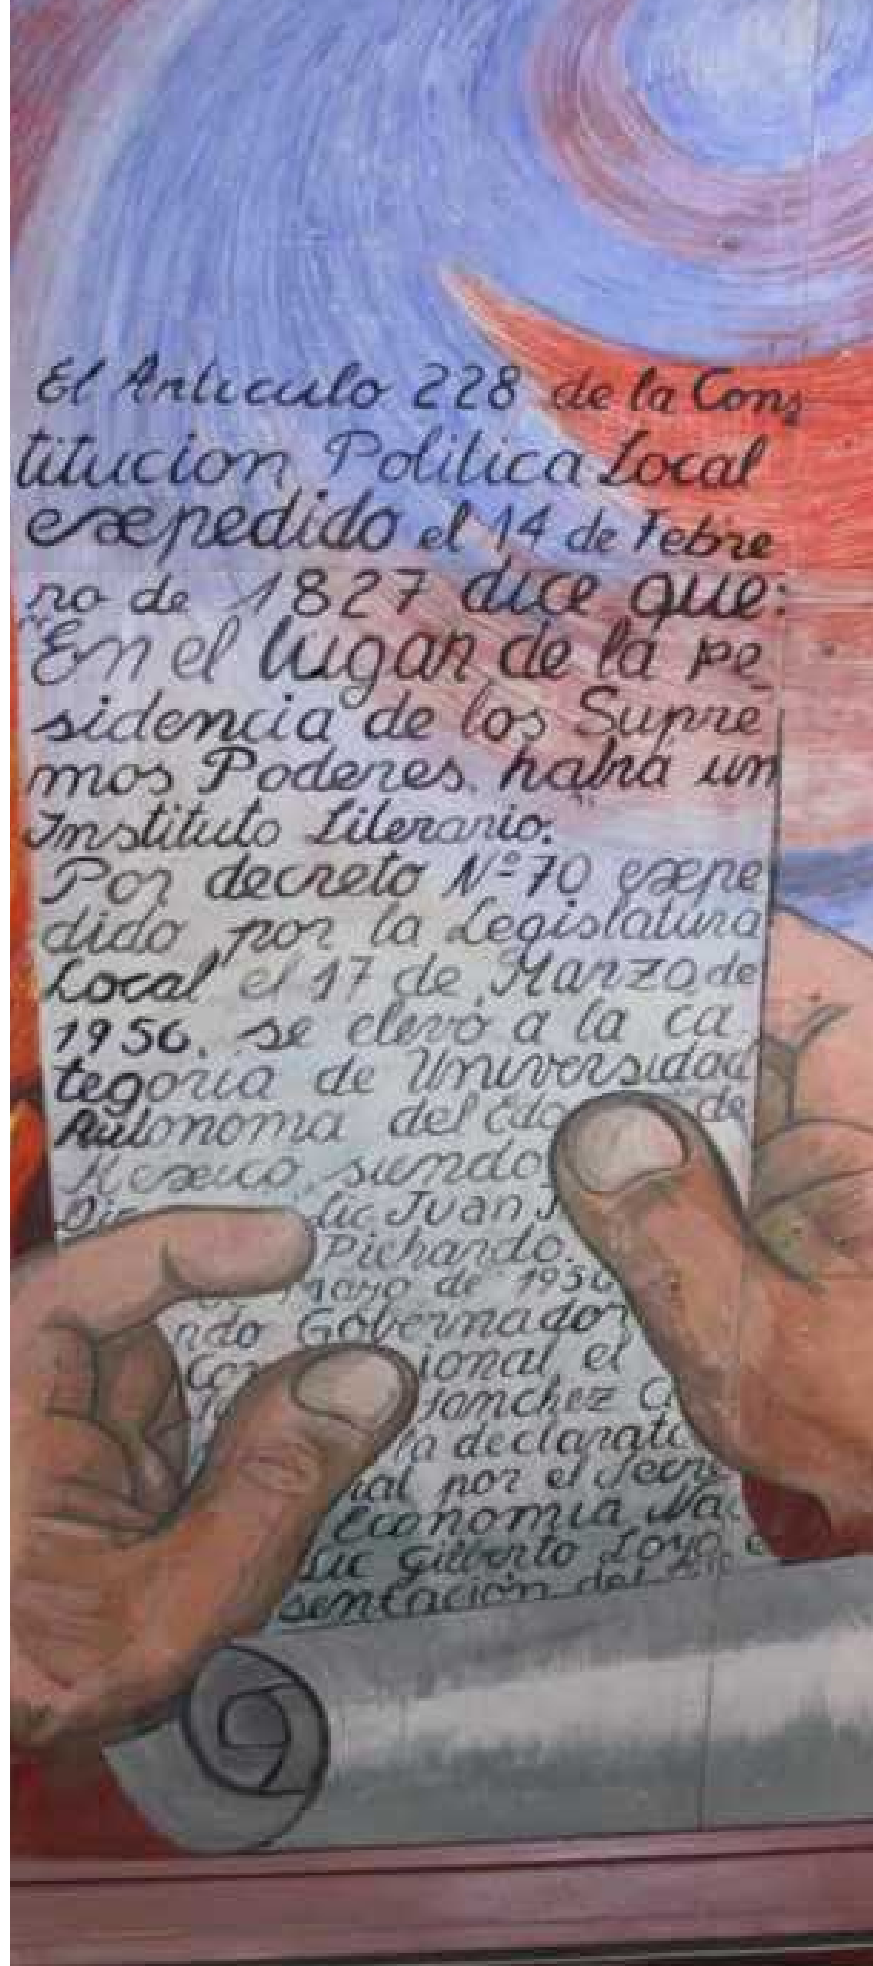 El Articulo 228 de la Cons
titucion Politica Local
expedido el 14 de Febre
ro de 1827 dice que:
"En el lugar de la re
sidencia de los Supre
mos Poderes, habra un
Instituto Literario.
Por decreto Nº 70 expe
dido por la Legislatura
Local el 17 de Marzo de
1956. se elevó a la ca
tegoria de Universidad
Autonoma del Edo de
Mexico, siendo
Lic Juan J
Pichardo.
Mayo de 1956
ndo Gobernador
ional, el
Sanchez C
la declarato
ial por el Secre
Economia Na
Lic Gilberto Loyo
sentación del